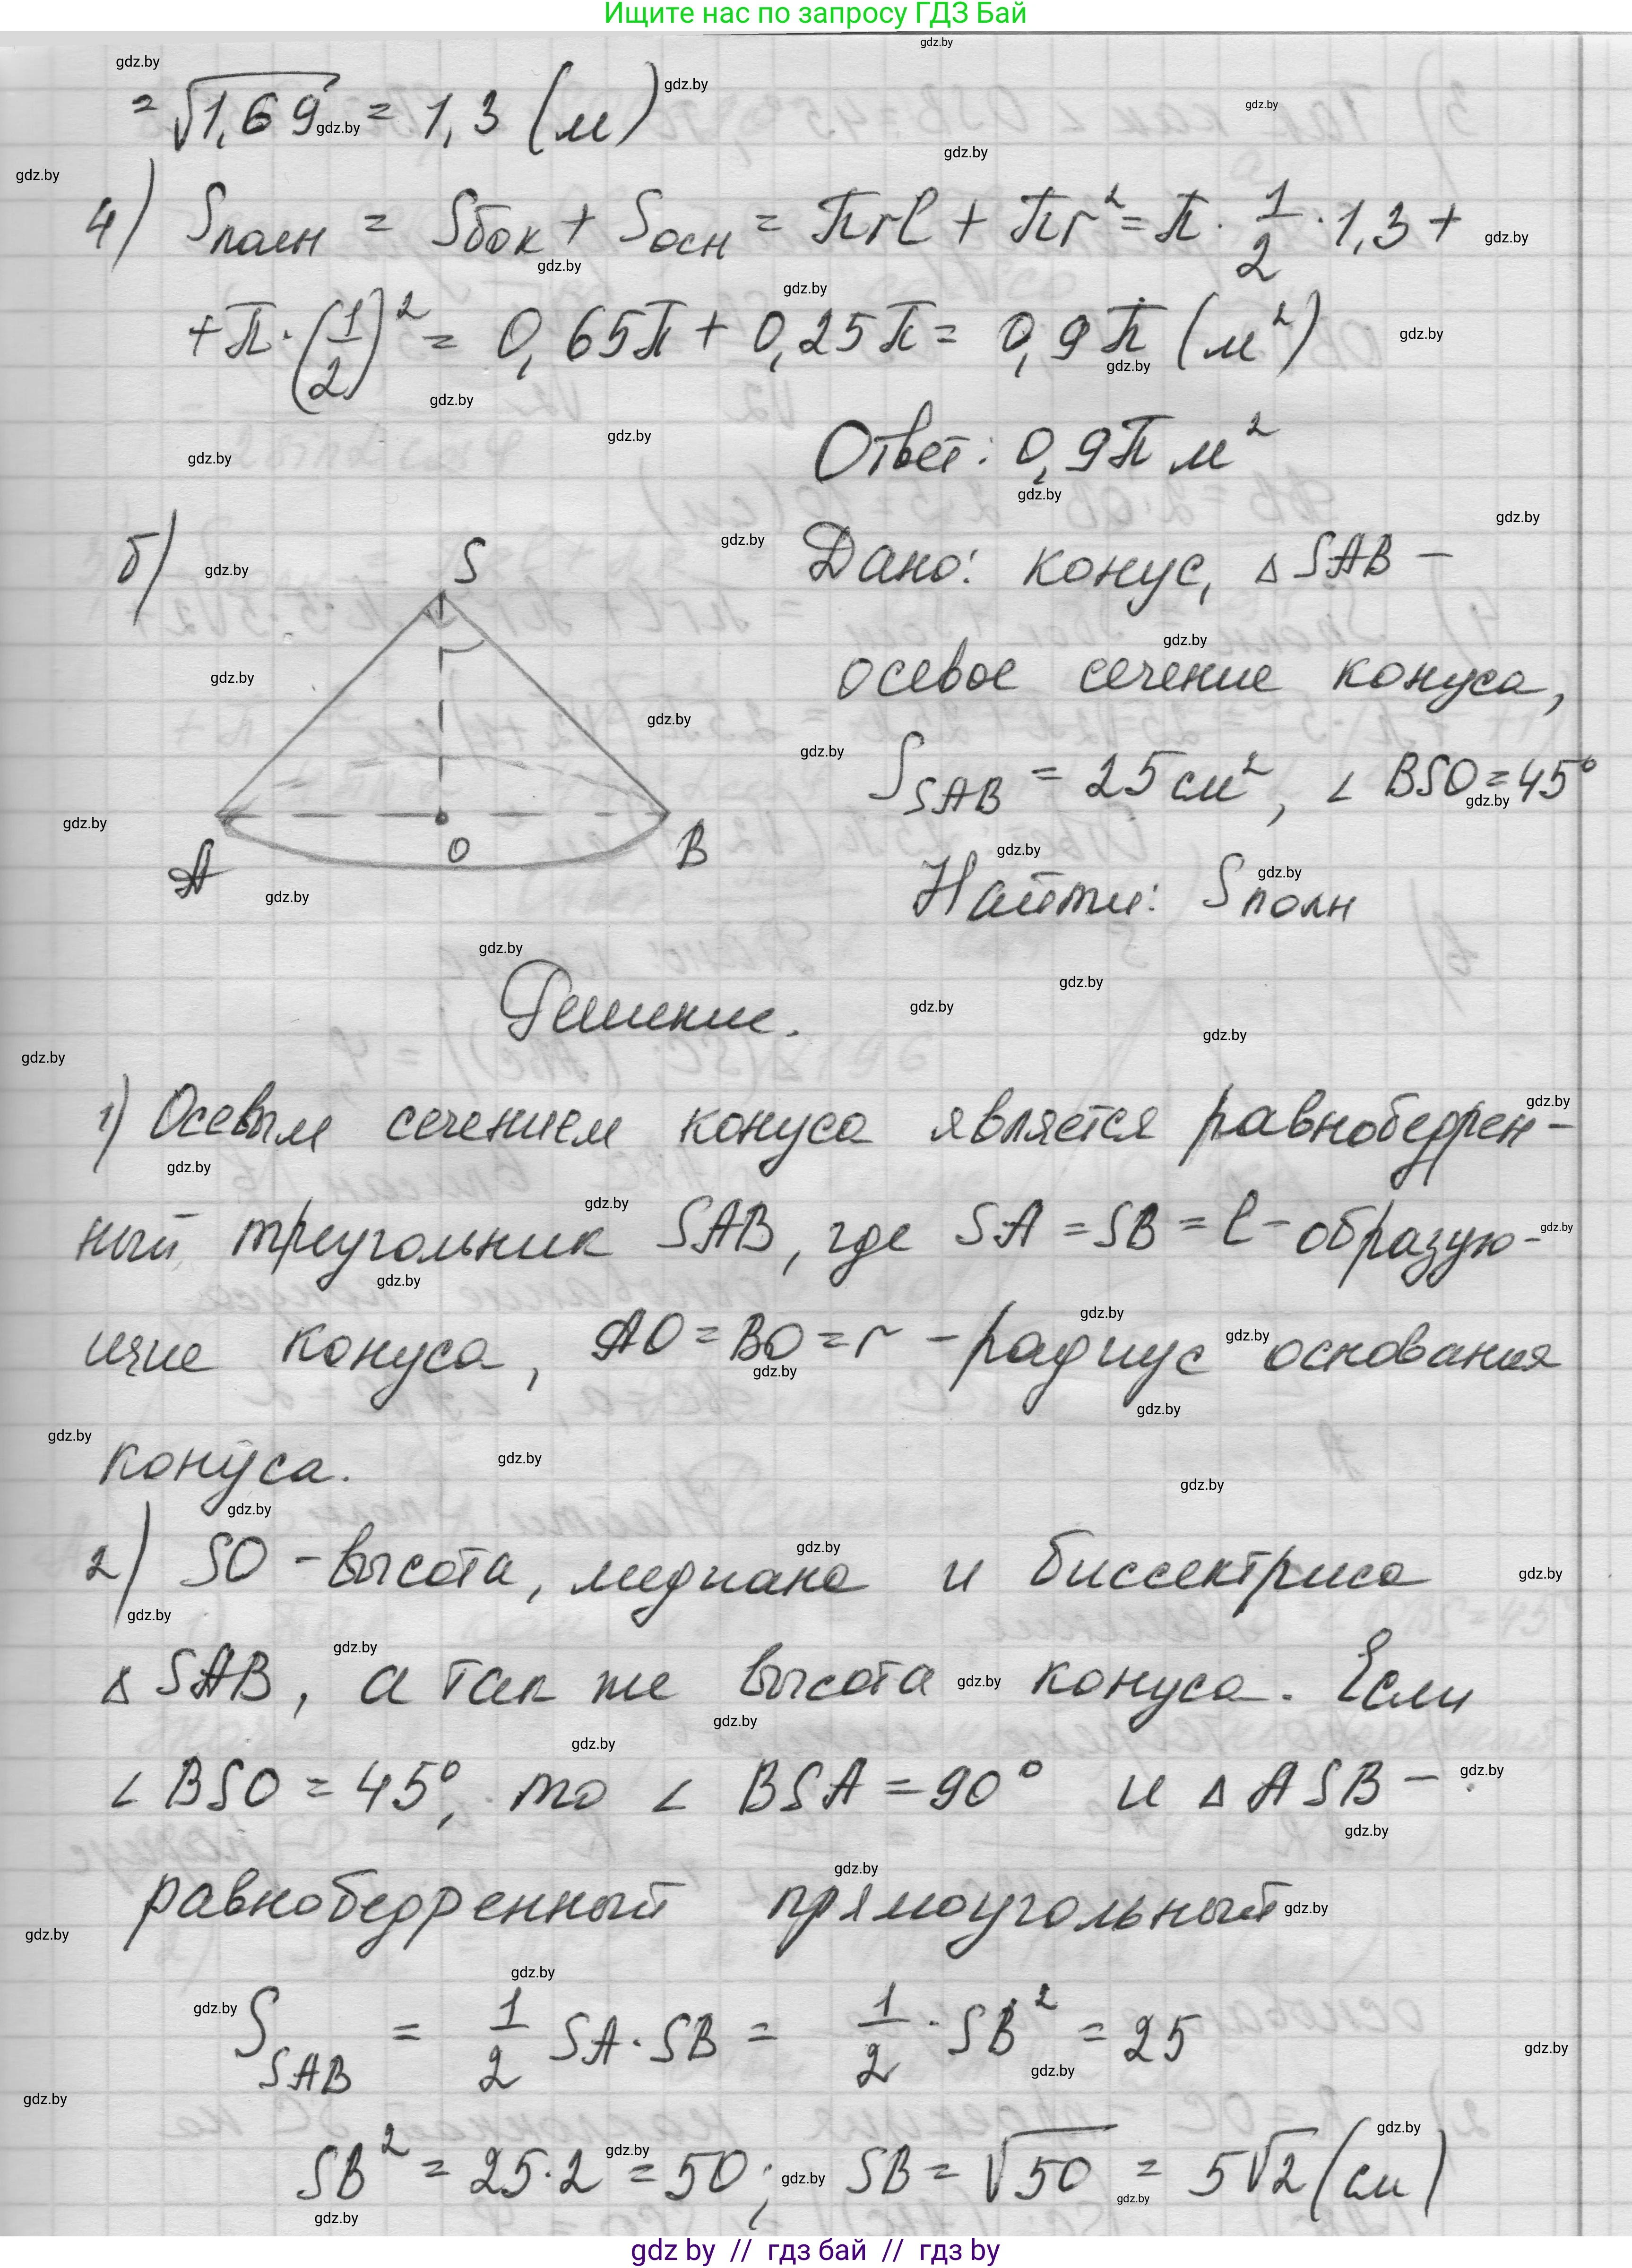 Ищите нас по запросу ГДЗ Бай
= √1,69 = 1,3 (м)
4) Sполн = Sбок + Sосн = πrl + πr² = π · 1/2 · 1,3 +
+ π · (1/2)² = 0,65π + 0,25π = 0,9π (м²)
Ответ: 0,9π м²
б)
S
A
O
B
Дано: конус, △SAB –
осевое сечение конуса,
S_SAB = 25 см², ∠BSO = 45°
Найти: Sполн
Решение.
1) Осевым сечением конуса является равнобедрен-
ный треугольник SAB, где SA = SB = l – образую-
щие конуса, AO = BO = r – радиус основания
конуса.
2) SO – высота, медиана и биссектриса
△SAB, а так же высота конуса. Если
∠BSO = 45°, то ∠BSA = 90° и △ASB –
равнобедренный прямоугольный
S_SAB = 1/2 SA · SB = 1/2 · SB² = 25
SB² = 25 · 2 = 50; SB = √50 = 5√2 (см)
gdz by // гдз бай // гдз by